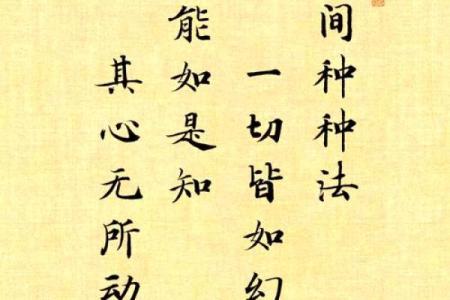 间种种法
一切皆如幻
能如是知
其心无所动